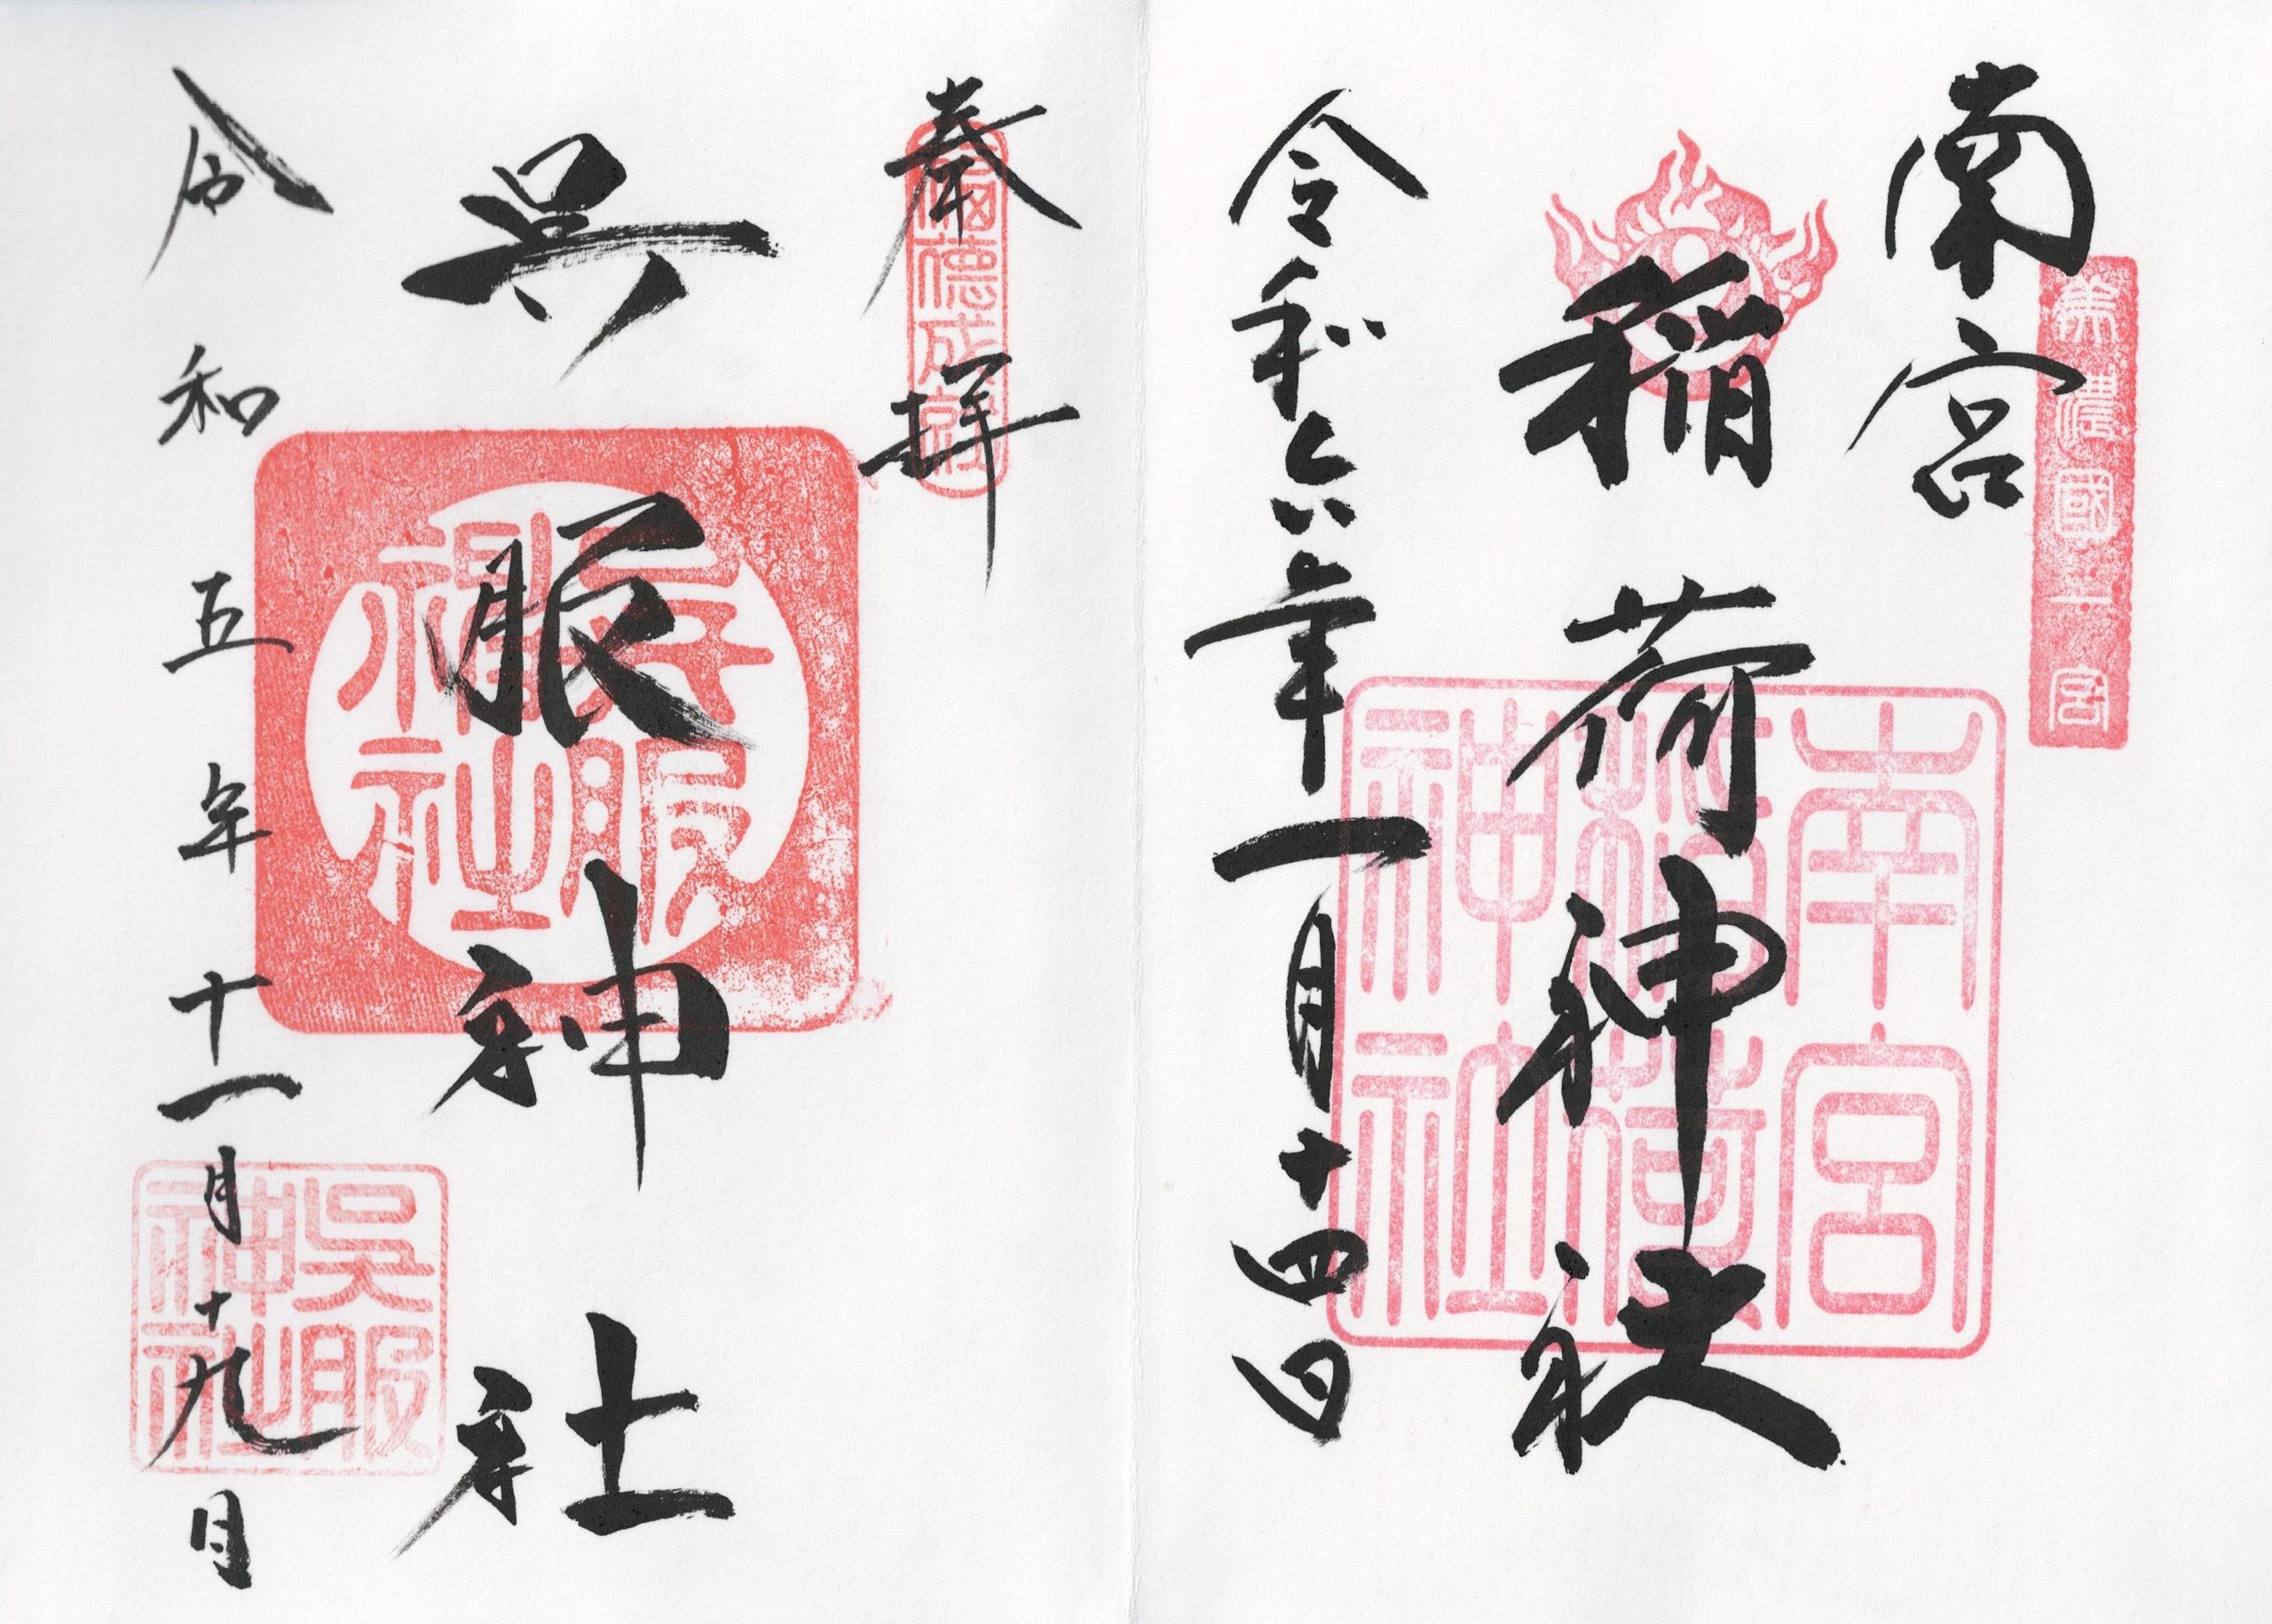 南宮
美濃國一宮
稲荷神社
南宮
稲荷
神社
令和六年一月十四日
奉拝
呉服神社
呉服
神社
令和五年十一月十九日